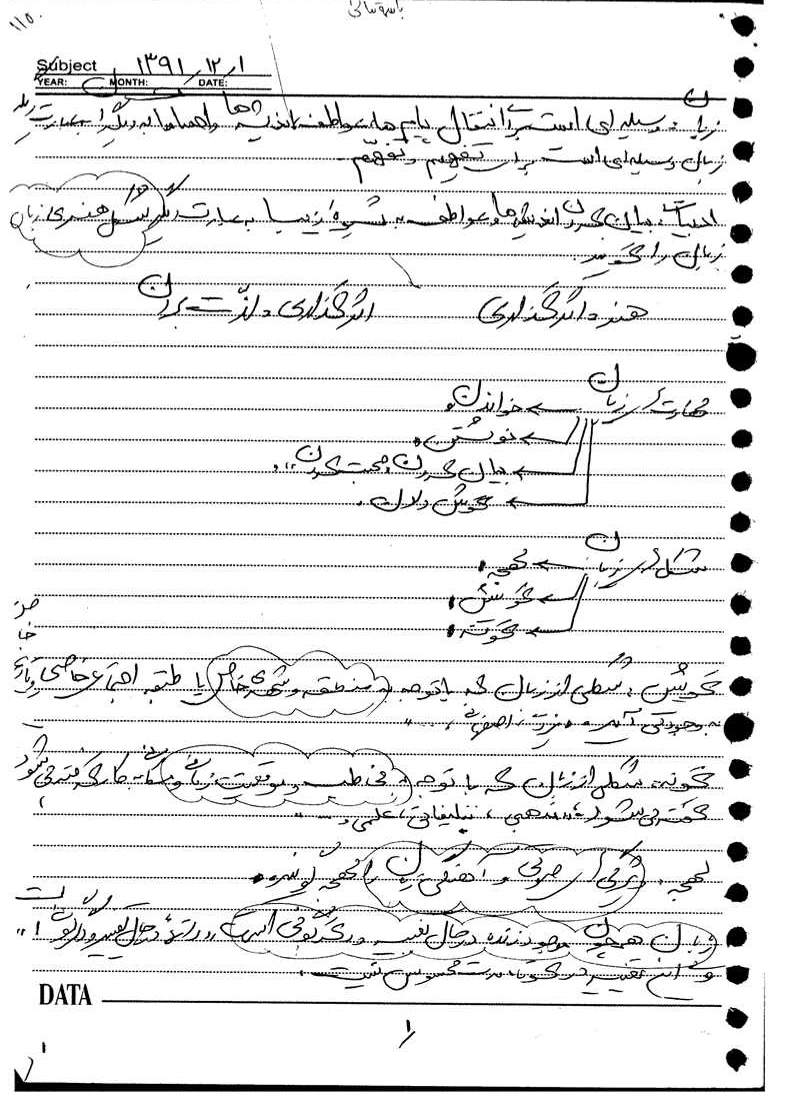 ۱۱۵
Subject ۱۳۹۱/۱۲/۱
YEAR: MONTH: DATE:
زبان: وسیله ای است برای انتقال پیام ها، عواطف، اندیشه ها و به عبارت دیگر
زبان وسیله ای است برای تفهیم و تفهّم.
ادبیات: بیان کردن اندیشه ها و عواطف به شیوه ای زیبا به عبارت دیگر شکل هنری زبان
زبان را گویند.
هنر: اثرگذاری اثرگذاری، لذّت بردن
مهارت های زبان
خواندن
نوشتن
بیان کردن، صحبت کردن
گوش دادن
شکل های زبان
لهجه
گویش
گونه
گویش: شکلی از زبان که با توجه به منطقه و شهری خاص یا طبقه اجتماعی خاصی
به وجود می آید
گونه: شکلی از زبان که با توجه به مخاطب و موقعیت زمانی و مکانی به کار گرفته می شود
گفته می شود: مذهبی، تبلیغاتی، علمی و ...
لهجه: ویژگی های صوتی و آهنگی زبان را لهجه گویند.
زبان همچون موجود زنده در حال تغییر و دگرگونی است
و این تغییر در کوتاه مدت محسوس نیست.
DATA
۱
۱